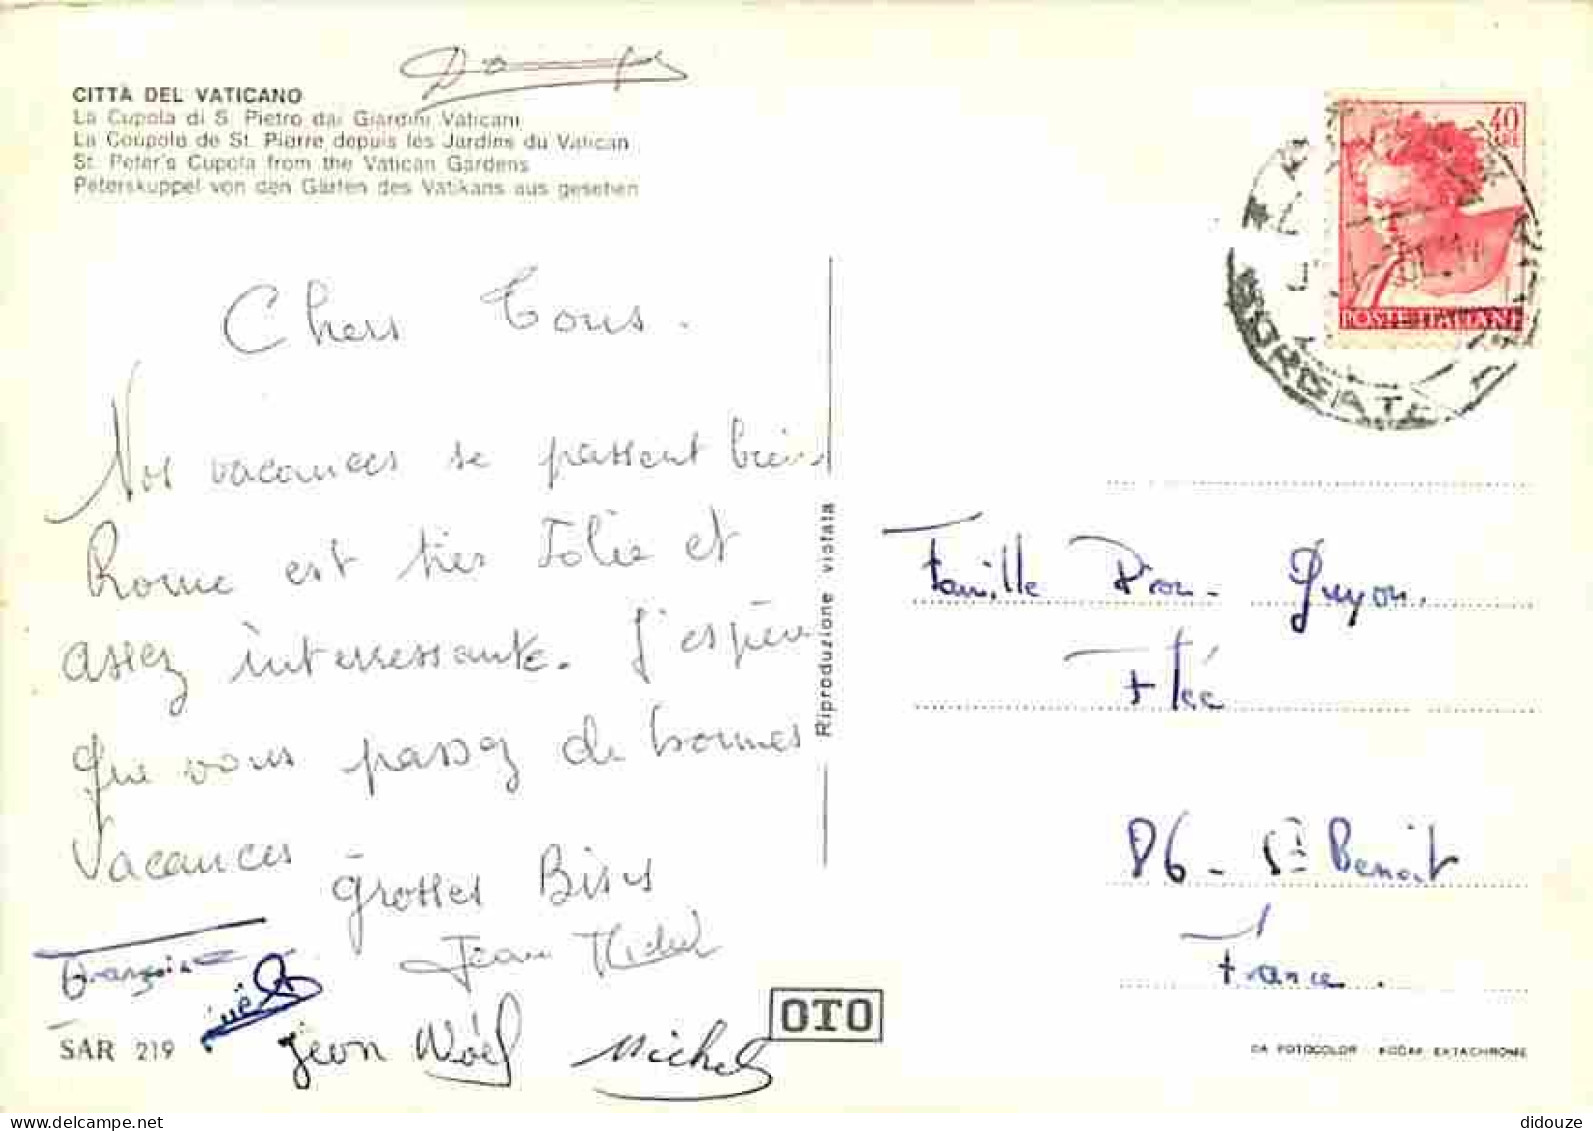 CITTÀ DEL VATICANO
La Cupola di S. Pietro dai Giardini Vaticani
La Coupole de St. Pierre depuis les Jardins du Vatican
St. Peter's Cupola from the Vatican Gardens
Peterskuppel von den Gärten des Vatikans aus gesehen
40
LIRE
POSTE ITALIANE
BORGATE
Chers Tous.
Nos vacances se passent bien
Rome est très Jolie et
assez intèrressante. J'espère
que vous passez de bonnes
Vacances
Grosses Bises
Jean Michel
Françoise
Joëlle
Jean Noël
Michel
SAR 219
OTO
Riproduzione vietata
Famille Pion-Guyon.
Flée
86 - St Benoit
France.
DA FOTOCOLOR - KODAK EKTACHROME
didouze